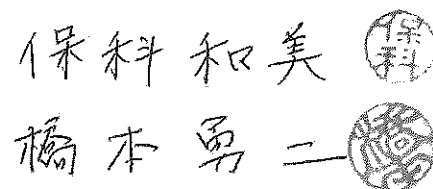 保科和美 保科
橋本勇二